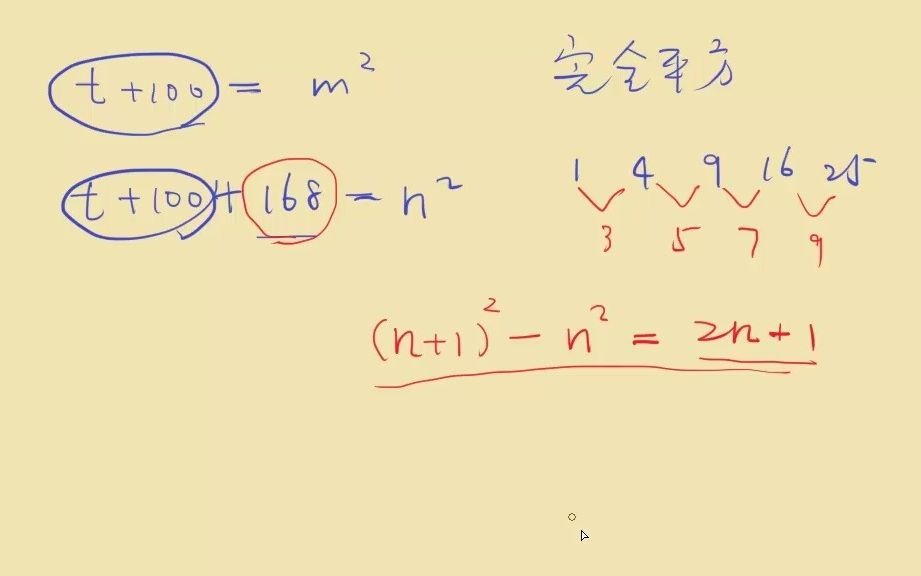 t+100 = m²
完全平方
t+100+168 = n²
1 4 9 16 25
3 5 7 9
(n+1)² - n² = 2n+1